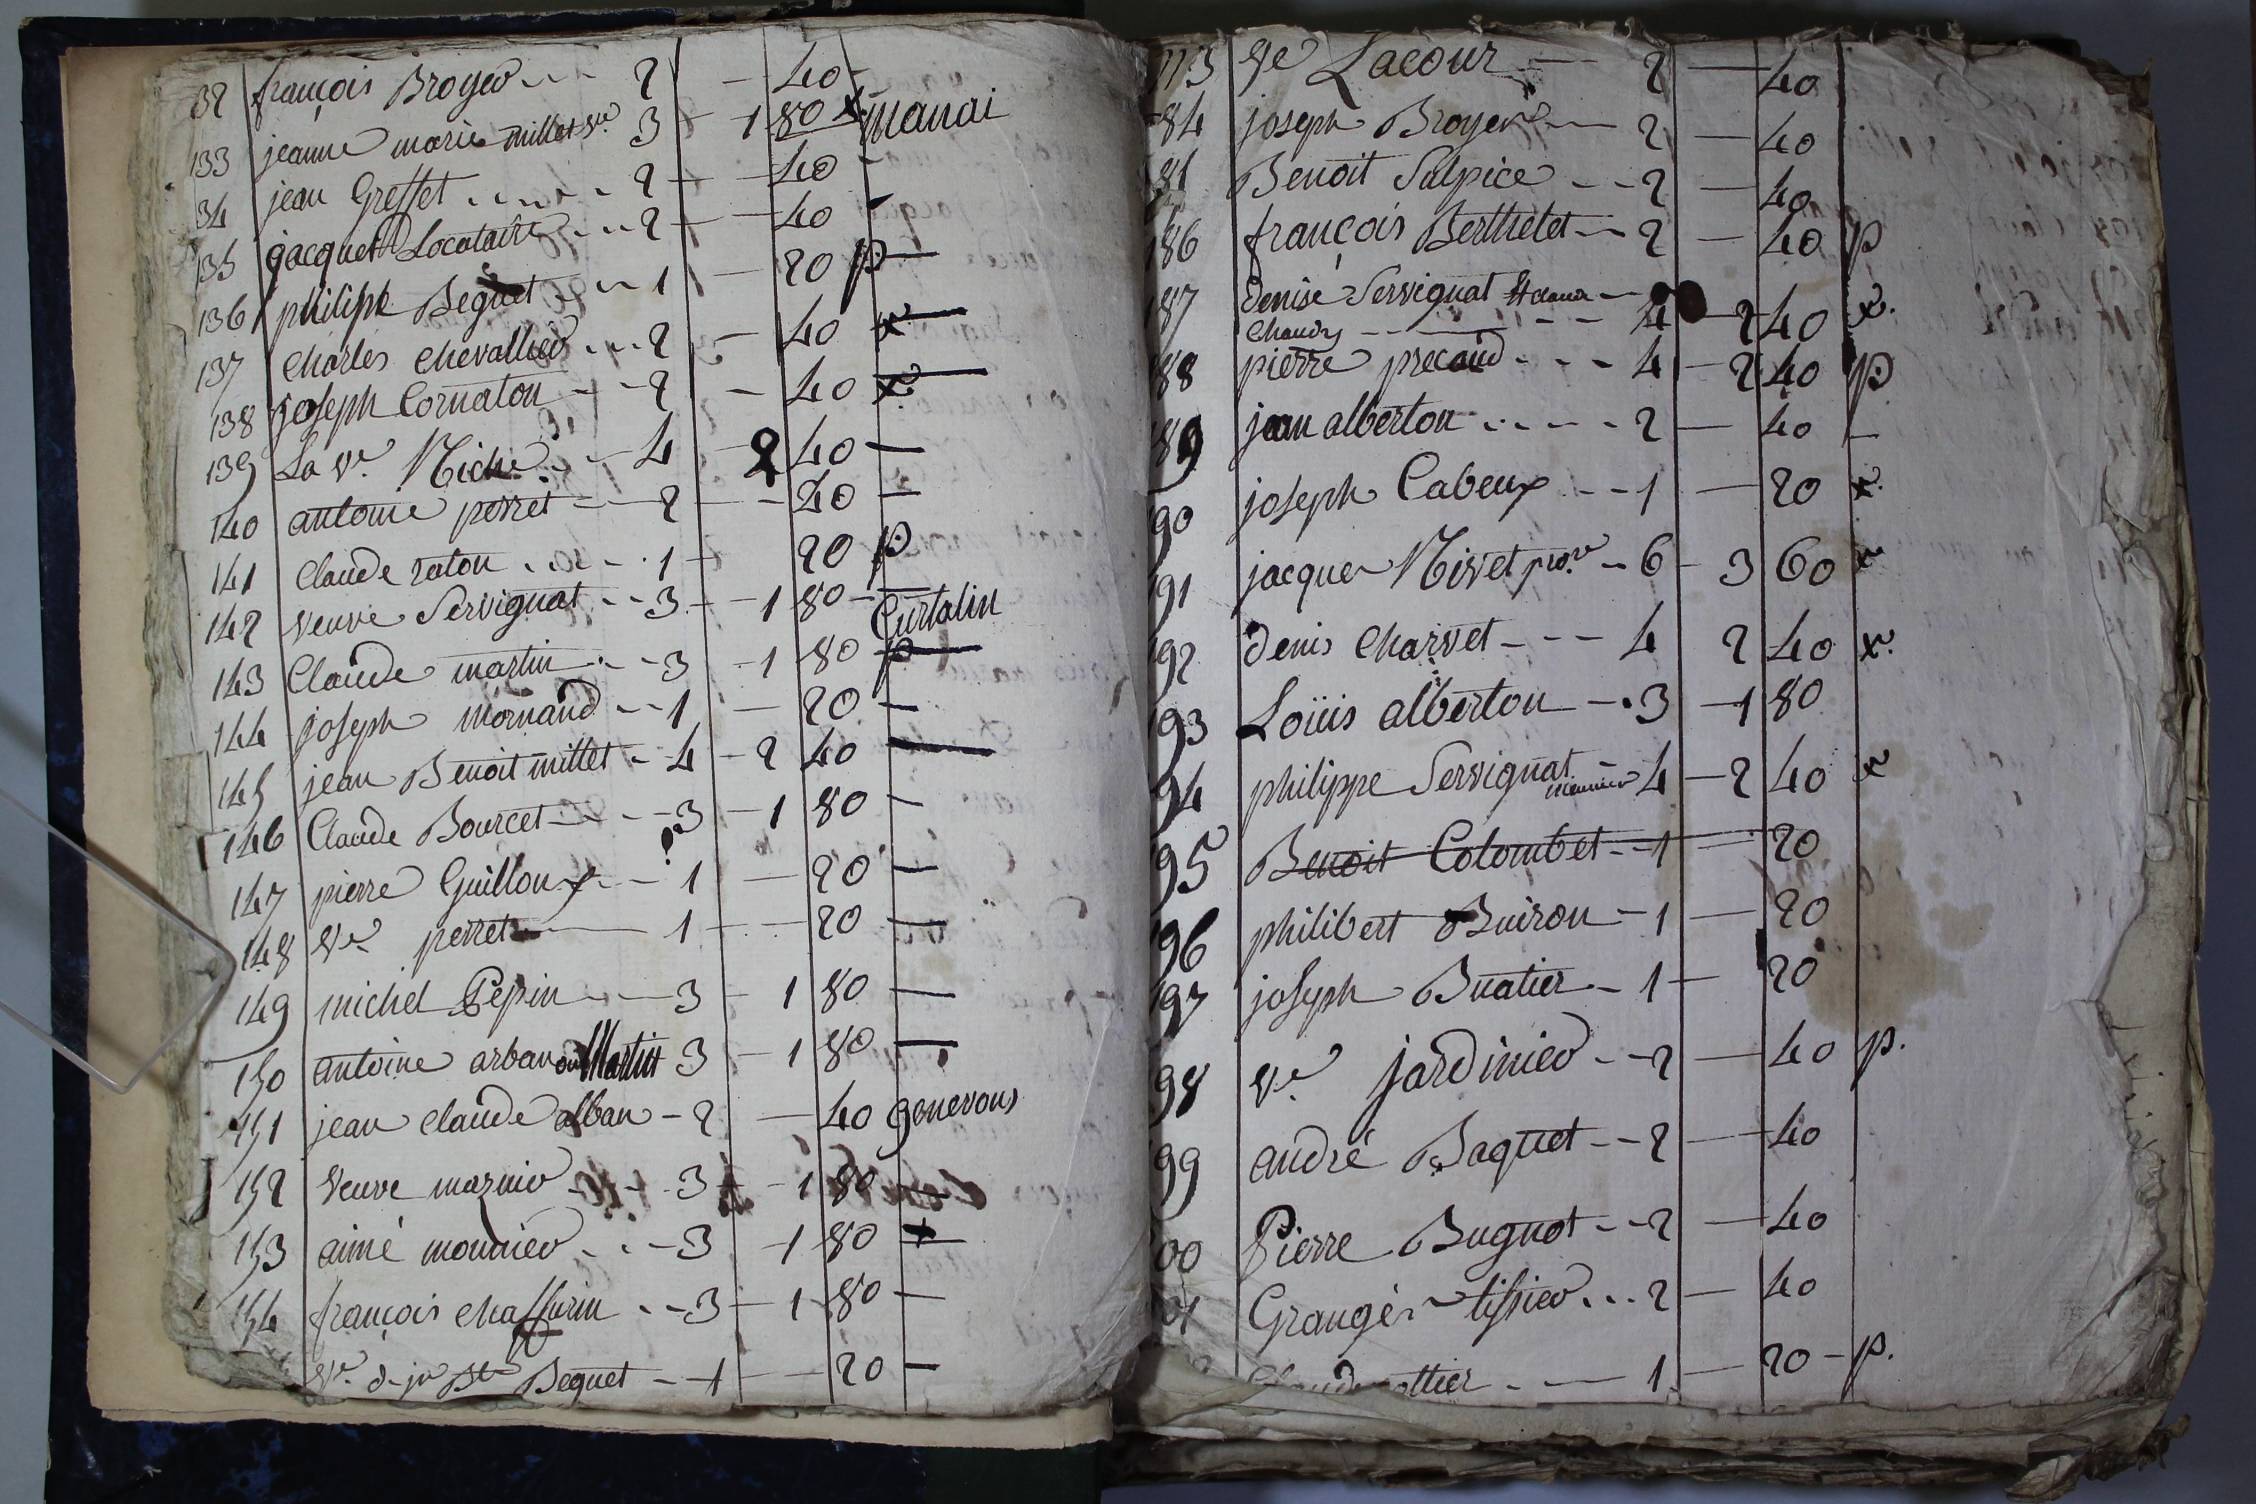 32 françois Broyer 2 — 40 -
133 jeanne marie millet ve 3 - 1 80 x manai
34 jean Greffet 2 — 40 -
35 jacquet Locataire 2 — 40 -
136 philiph Beguet 1 — 20 p. —
137 charles chevallier 2 — 40 x —
138 joseph Cornaton 2 — 40 x —
139 La ve Niche 4 - 2 40 —
140 antoine perret 2 — 40 —
141 Claude raton 1 20 p
142 veuve Servignat 3 - 1 80 - Curtalin
143 Claude martin 3 - 1 80 p
144 joseph mornand 1 — 20 -
145 jean Benoit millet 4 - 2 40 —
146 Claude Bourcet 3 - 1 80 -
147 pierre Guilloux 1 — 20 -
148 Ve perret 1 — 20 —
149 michel Pepin 3 - 1 80 —
150 antoine arban ou Martin 3 - 1 80 —
151 jean claude alban - 2 — 40 genevous
152 Veuve marnio 3 - 1 80 —
153 aimé monnier 3 - 1 80 +
154 françois chaffurin 3 - 1 80 —
Ve d. jn Bte Beguet 1 — 20 —
113 Ve Lacour 2 — 40
84 joseph Broyer 2 — 40
Benoit Sulpice 2 — 40
186 françois Berthelet 2 — 40 p
187 denise Servignat
Chaudy 4 - 2 40 x.
88 pierre precaud 4 - 2 40 p
89 jean alberton 2 — 40 -
90 joseph Cabeux 1 — 20 x.
91 jacques Nivet pro.re 6 - 3 60 x
92 denis Charvet 4 2 40 x.
93 Loüis alberton 3 - 1 80
94 philippe Servignat meunier 4 - 2 40 x
95 Benoit Colombet 1 — 20
96 philibert Buiron - 1 — 20
97 joseph Buatier - 1 — 20
98 Ve jardinier 2 — 40 p.
99 andré Baquet 2 — 40
00 Pierre Bugnot 2 — 40
01 Granger tissier 2 — 40
1 — 20 - p.